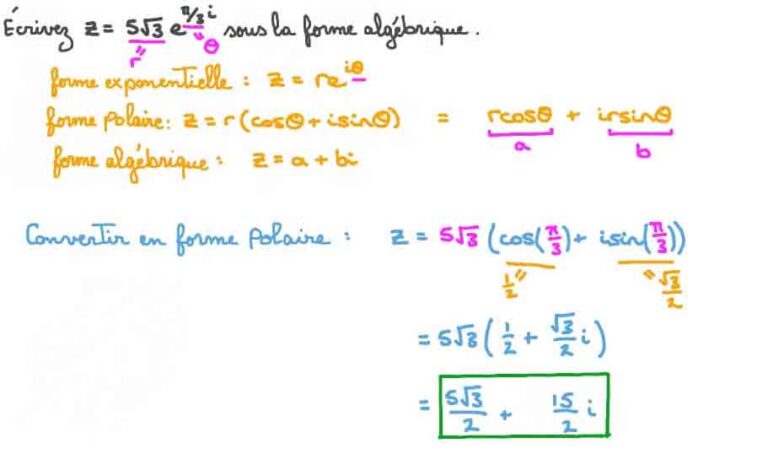 Écrivez z = 5√3 e^{π/3 i} sous la forme algébrique.
r" "θ
forme exponentielle : z = re^{iθ}
forme polaire : z = r(cosθ + isinθ) = rcosθ + irsinθ
a b
forme algébrique : z = a + bi
Convertir en forme polaire : z = 5√3 (cos(π/3) + isin(π/3))
1/2 " " √3/2
= 5√3 (1/2 + √3/2 i)
= 5√3/2 + 15/2 i